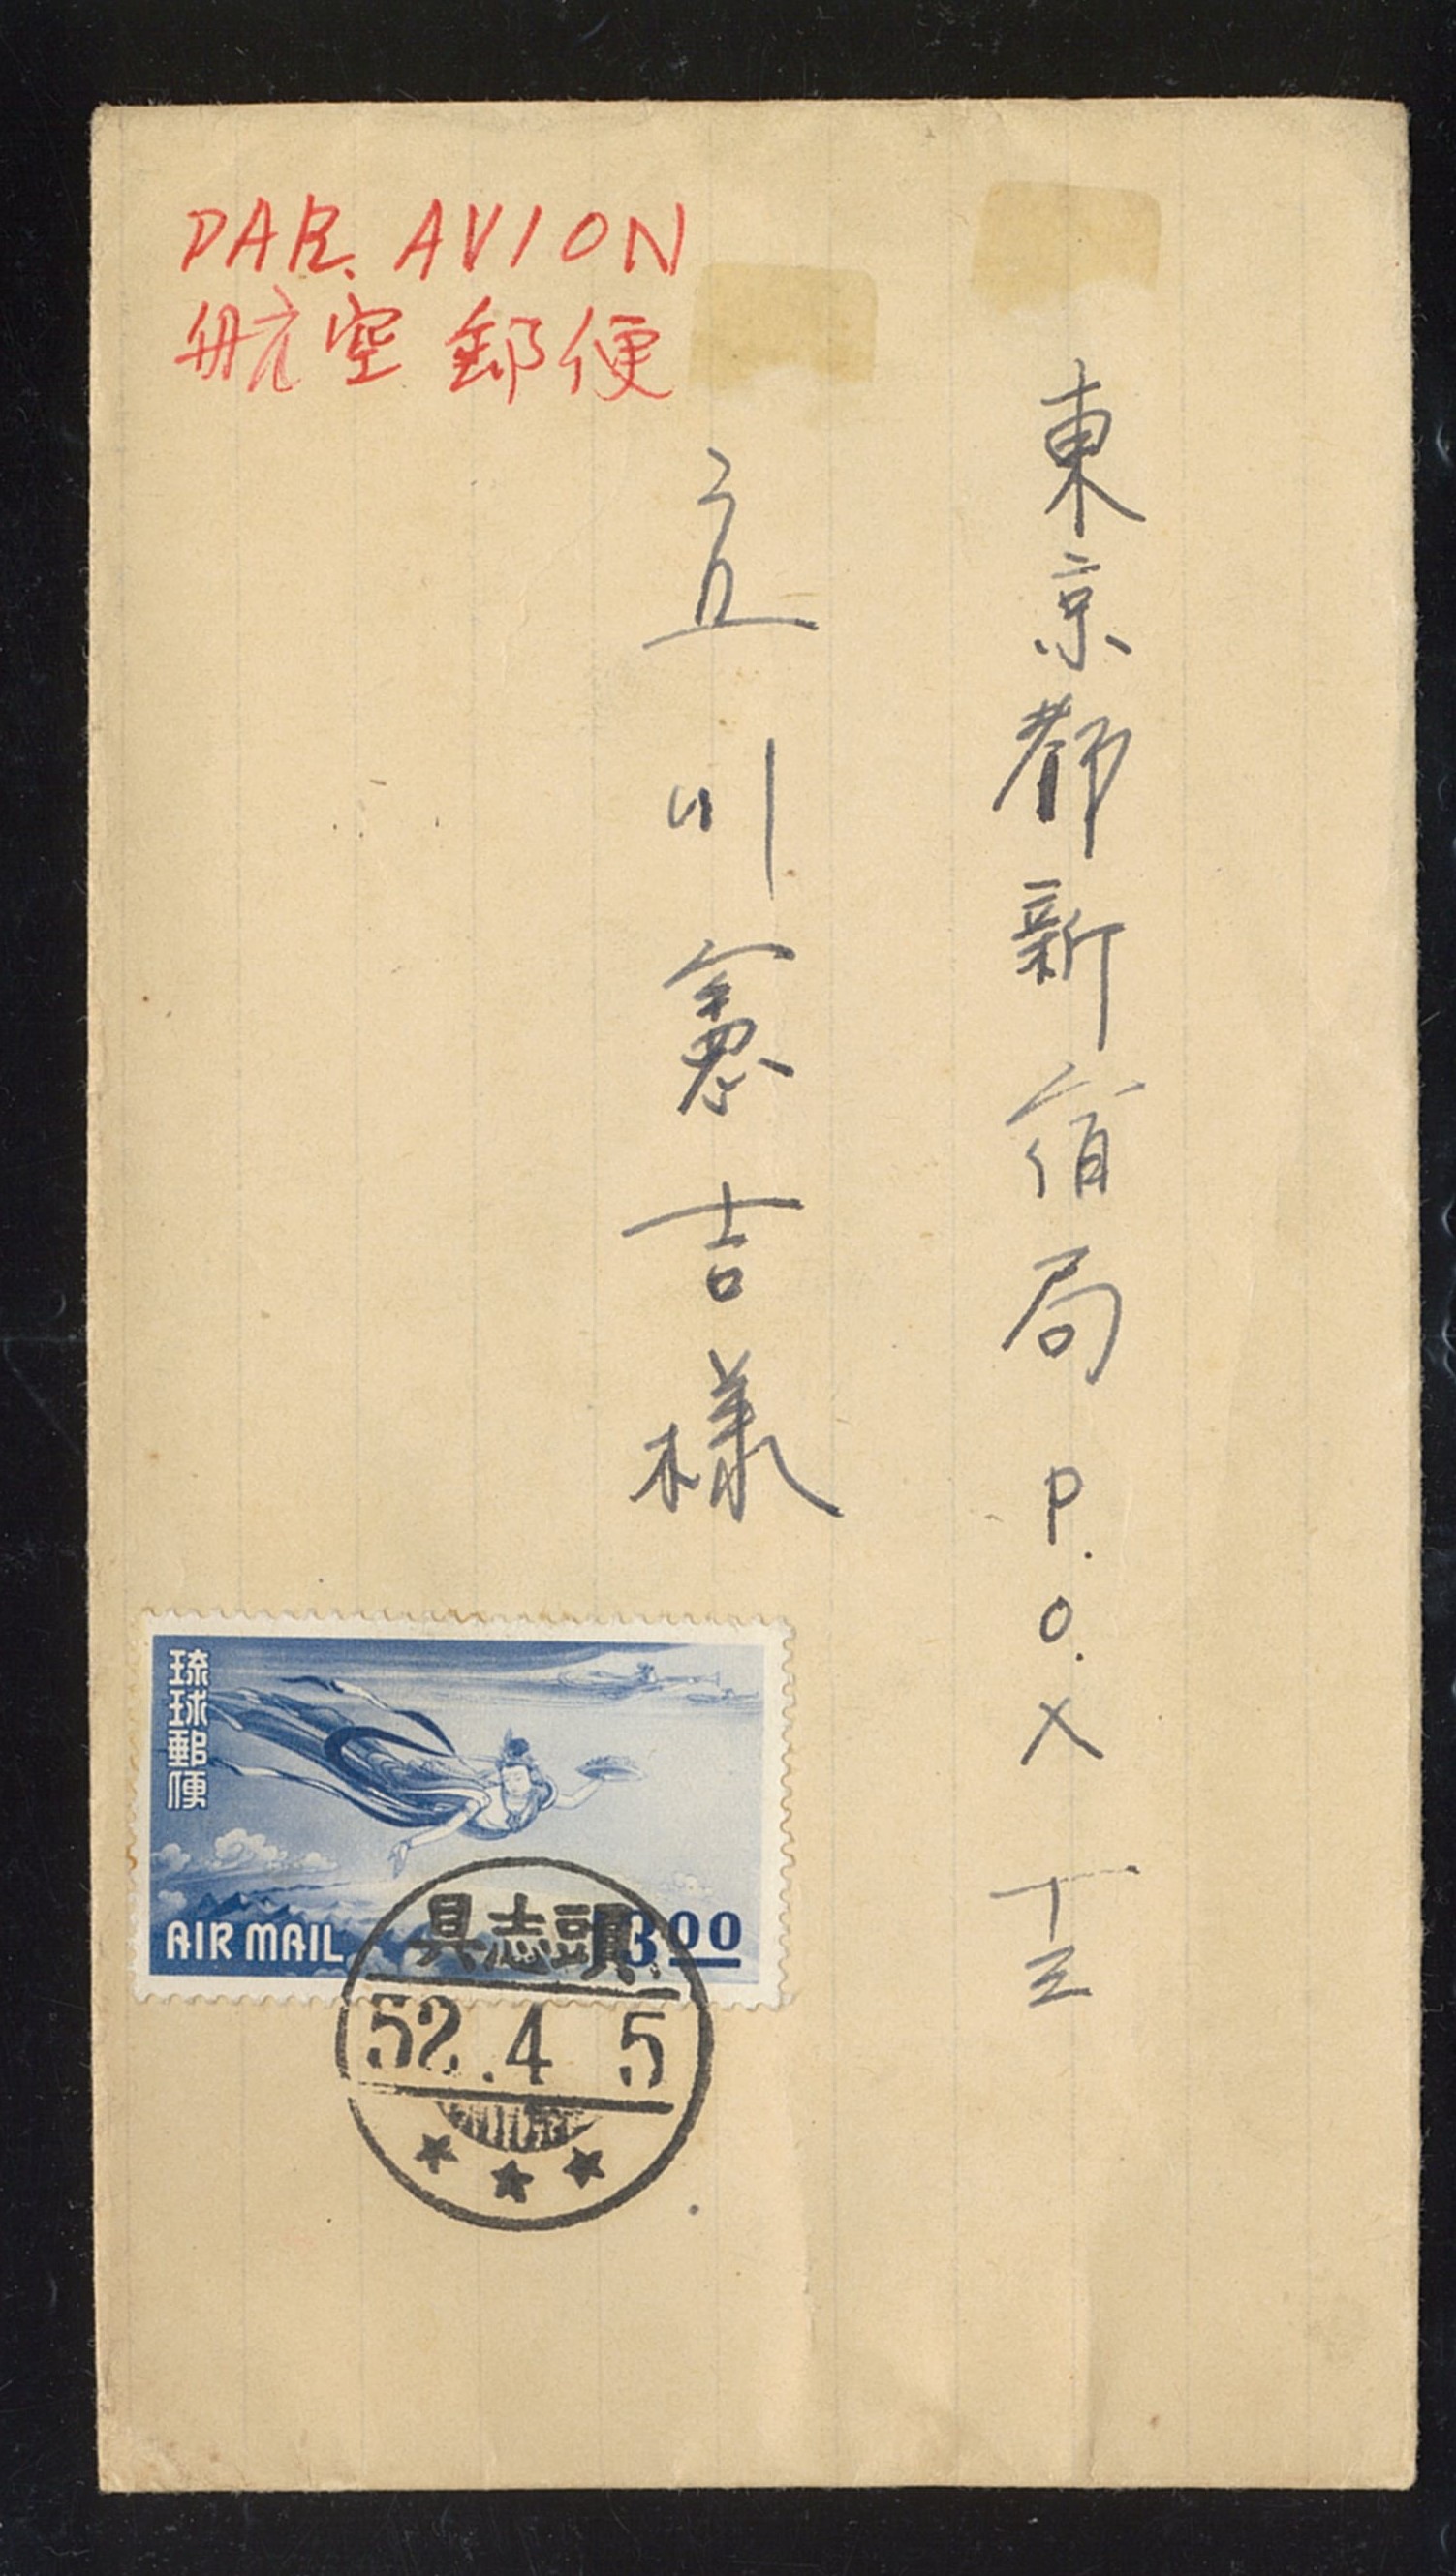 PAR. AVION
航空郵便
東京都新宿局 P.O.X 十三
立川憲吉様
琉球郵便
AIR MAIL
具志頭
52.4 5